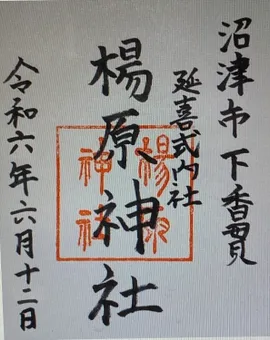 沼津市下香貫
延喜式内社
楊原神社
楊原神社
令和六年六月十二日